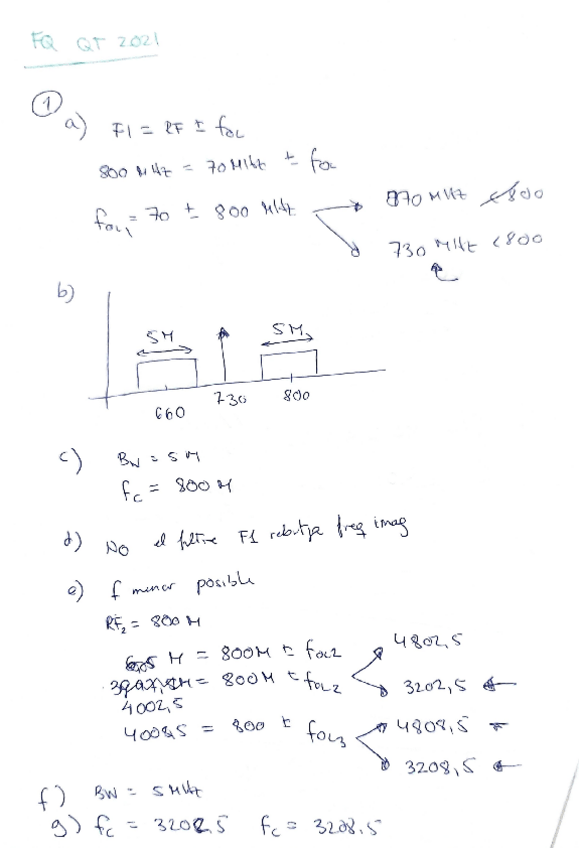 FQ QT 2021
1
a) FI = RF ± fOL
800 MHz = 70 MHz ± fOL
fOL1 = 70 ± 800 MHz
870 MHz <800
730 MHz <800
b)
5M 5M
660 730 800
c) BW = 5M
fc = 800 M
d) No el filtre FI rebutja freq imag
e) f menor posible
RF2 = 800 M
M = 800M ± fOL2
= 800M ± fOL2
4002,5
4802,5
3202,5
4008,5 = 800 ± fOL3
4808,5
3208,5
f) BW = 5 MHz
g) fc = 3202,5 fc = 3208,5